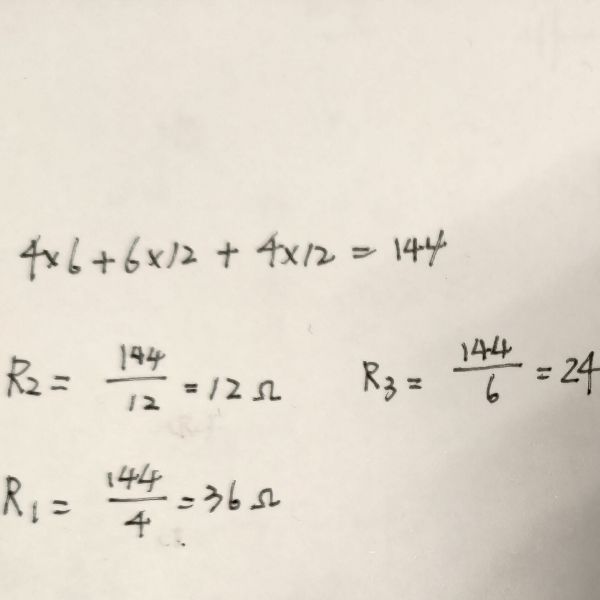 4×6+6×12+4×12=144
R2=144/12=12Ω R3=144/6=24
R1=144/4=36Ω